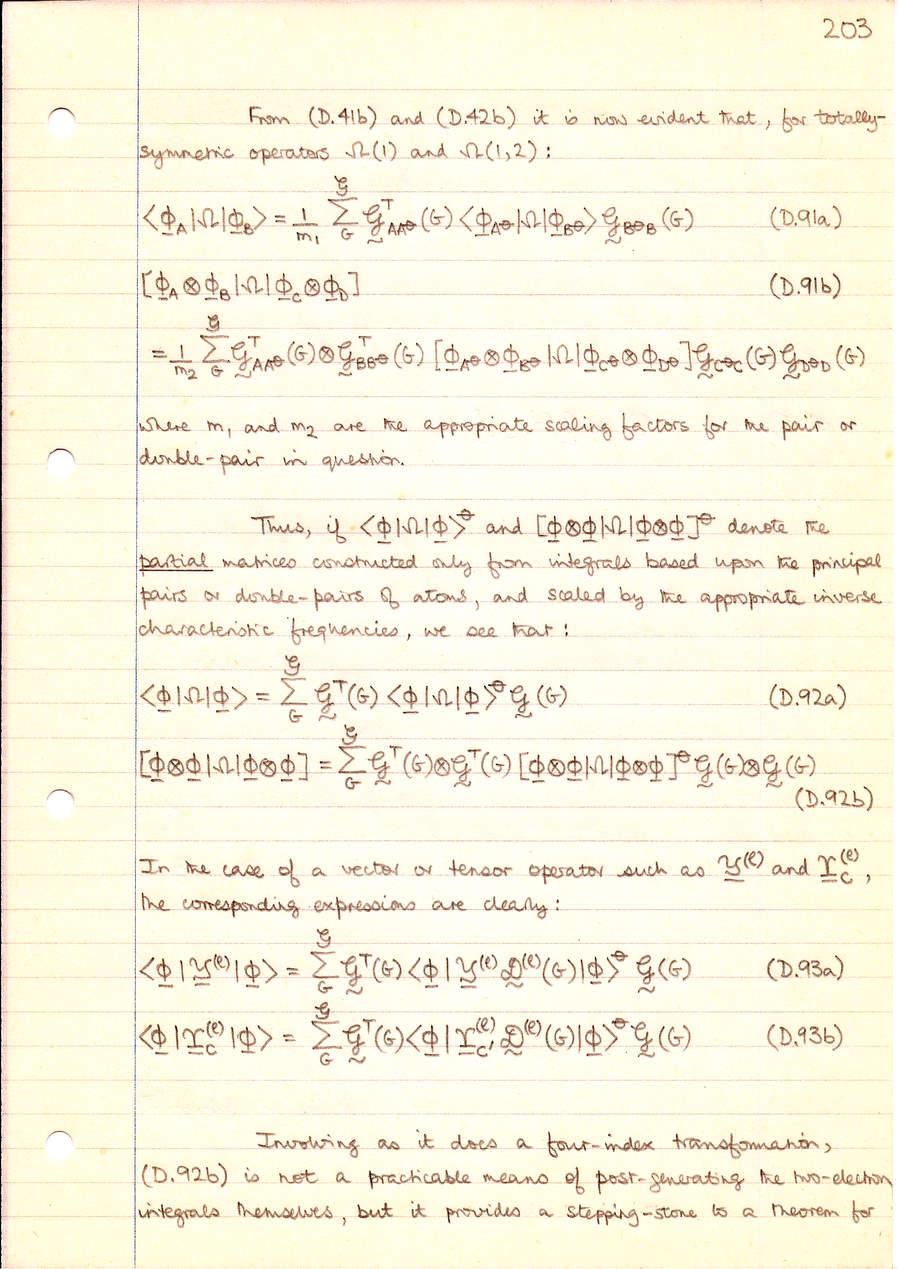 203
From (D.41b) and (D.42b) it is now evident that, for totally-
symmetric operators Ω(1) and Ω(1,2):
⟨Φ̲_A|Ω|Φ̲_B⟩ = 1/m₁ Σ_G^𝒢 𝒢̰ᵀ_{AA⊖}(G) ⟨Φ̲_{A⊖}|Ω|Φ̲_{B⊖}⟩ 𝒢̰_{B⊖B}(G) (D.91a)
[Φ̲_A ⊗ Φ̲_B|Ω|Φ̲_C ⊗ Φ̲_D] (D.91b)
= 1/m₂ Σ_G^𝒢 𝒢̰ᵀ_{AA⊖}(G) ⊗ 𝒢̰ᵀ_{BB⊖}(G) [Φ̲_{A⊖} ⊗ Φ̲_{B⊖}|Ω|Φ̲_{C⊖} ⊗ Φ̲_{D⊖}] 𝒢̰_{C⊖C}(G) 𝒢̰_{D⊖D}(G)
where m₁ and m₂ are the appropriate scaling factors for the pair or
double-pair in question.
Thus, if ⟨Φ̲|Ω|Φ̲⟩^⊖ and [Φ̲⊗Φ̲|Ω|Φ̲⊗Φ̲]^⊖ denote the
partial matrices constructed only from integrals based upon the principal
pairs or double-pairs of atoms, and scaled by the appropriate inverse
characteristic frequencies, we see that:
⟨Φ̲|Ω|Φ̲⟩ = Σ_G^𝒢 𝒢̰ᵀ(G) ⟨Φ̲|Ω|Φ̲⟩^⊖ 𝒢̰(G) (D.92a)
[Φ̲⊗Φ̲|Ω|Φ̲⊗Φ̲] = Σ_G^𝒢 𝒢̰ᵀ(G)⊗𝒢̰ᵀ(G) [Φ̲⊗Φ̲|Ω|Φ̲⊗Φ̲]^⊖ 𝒢̰(G)⊗𝒢̰(G)
(D.92b)
In the case of a vector or tensor operator such as 𝒴̲^(ℓ) and ϒ̲_C^(ℓ),
the corresponding expressions are clearly:
⟨Φ̲|𝒴̲^(ℓ)|Φ̲⟩ = Σ_G^𝒢 𝒢̰ᵀ(G) ⟨Φ̲|𝒴̲^(ℓ) 𝒟̰^(ℓ)(G)|Φ̲⟩^⊖ 𝒢̰(G) (D.93a)
⟨Φ̲|ϒ̲_C^(ℓ)|Φ̲⟩ = Σ_G^𝒢 𝒢̰ᵀ(G) ⟨Φ̲|ϒ̲_{C'}^(ℓ) 𝒟̰^(ℓ)(G)|Φ̲⟩^⊖ 𝒢̰(G) (D.93b)
Involving as it does a four-index transformation,
(D.92b) is not a practicable means of post-generating the two-electron
integrals themselves, but it provides a stepping-stone to a theorem for